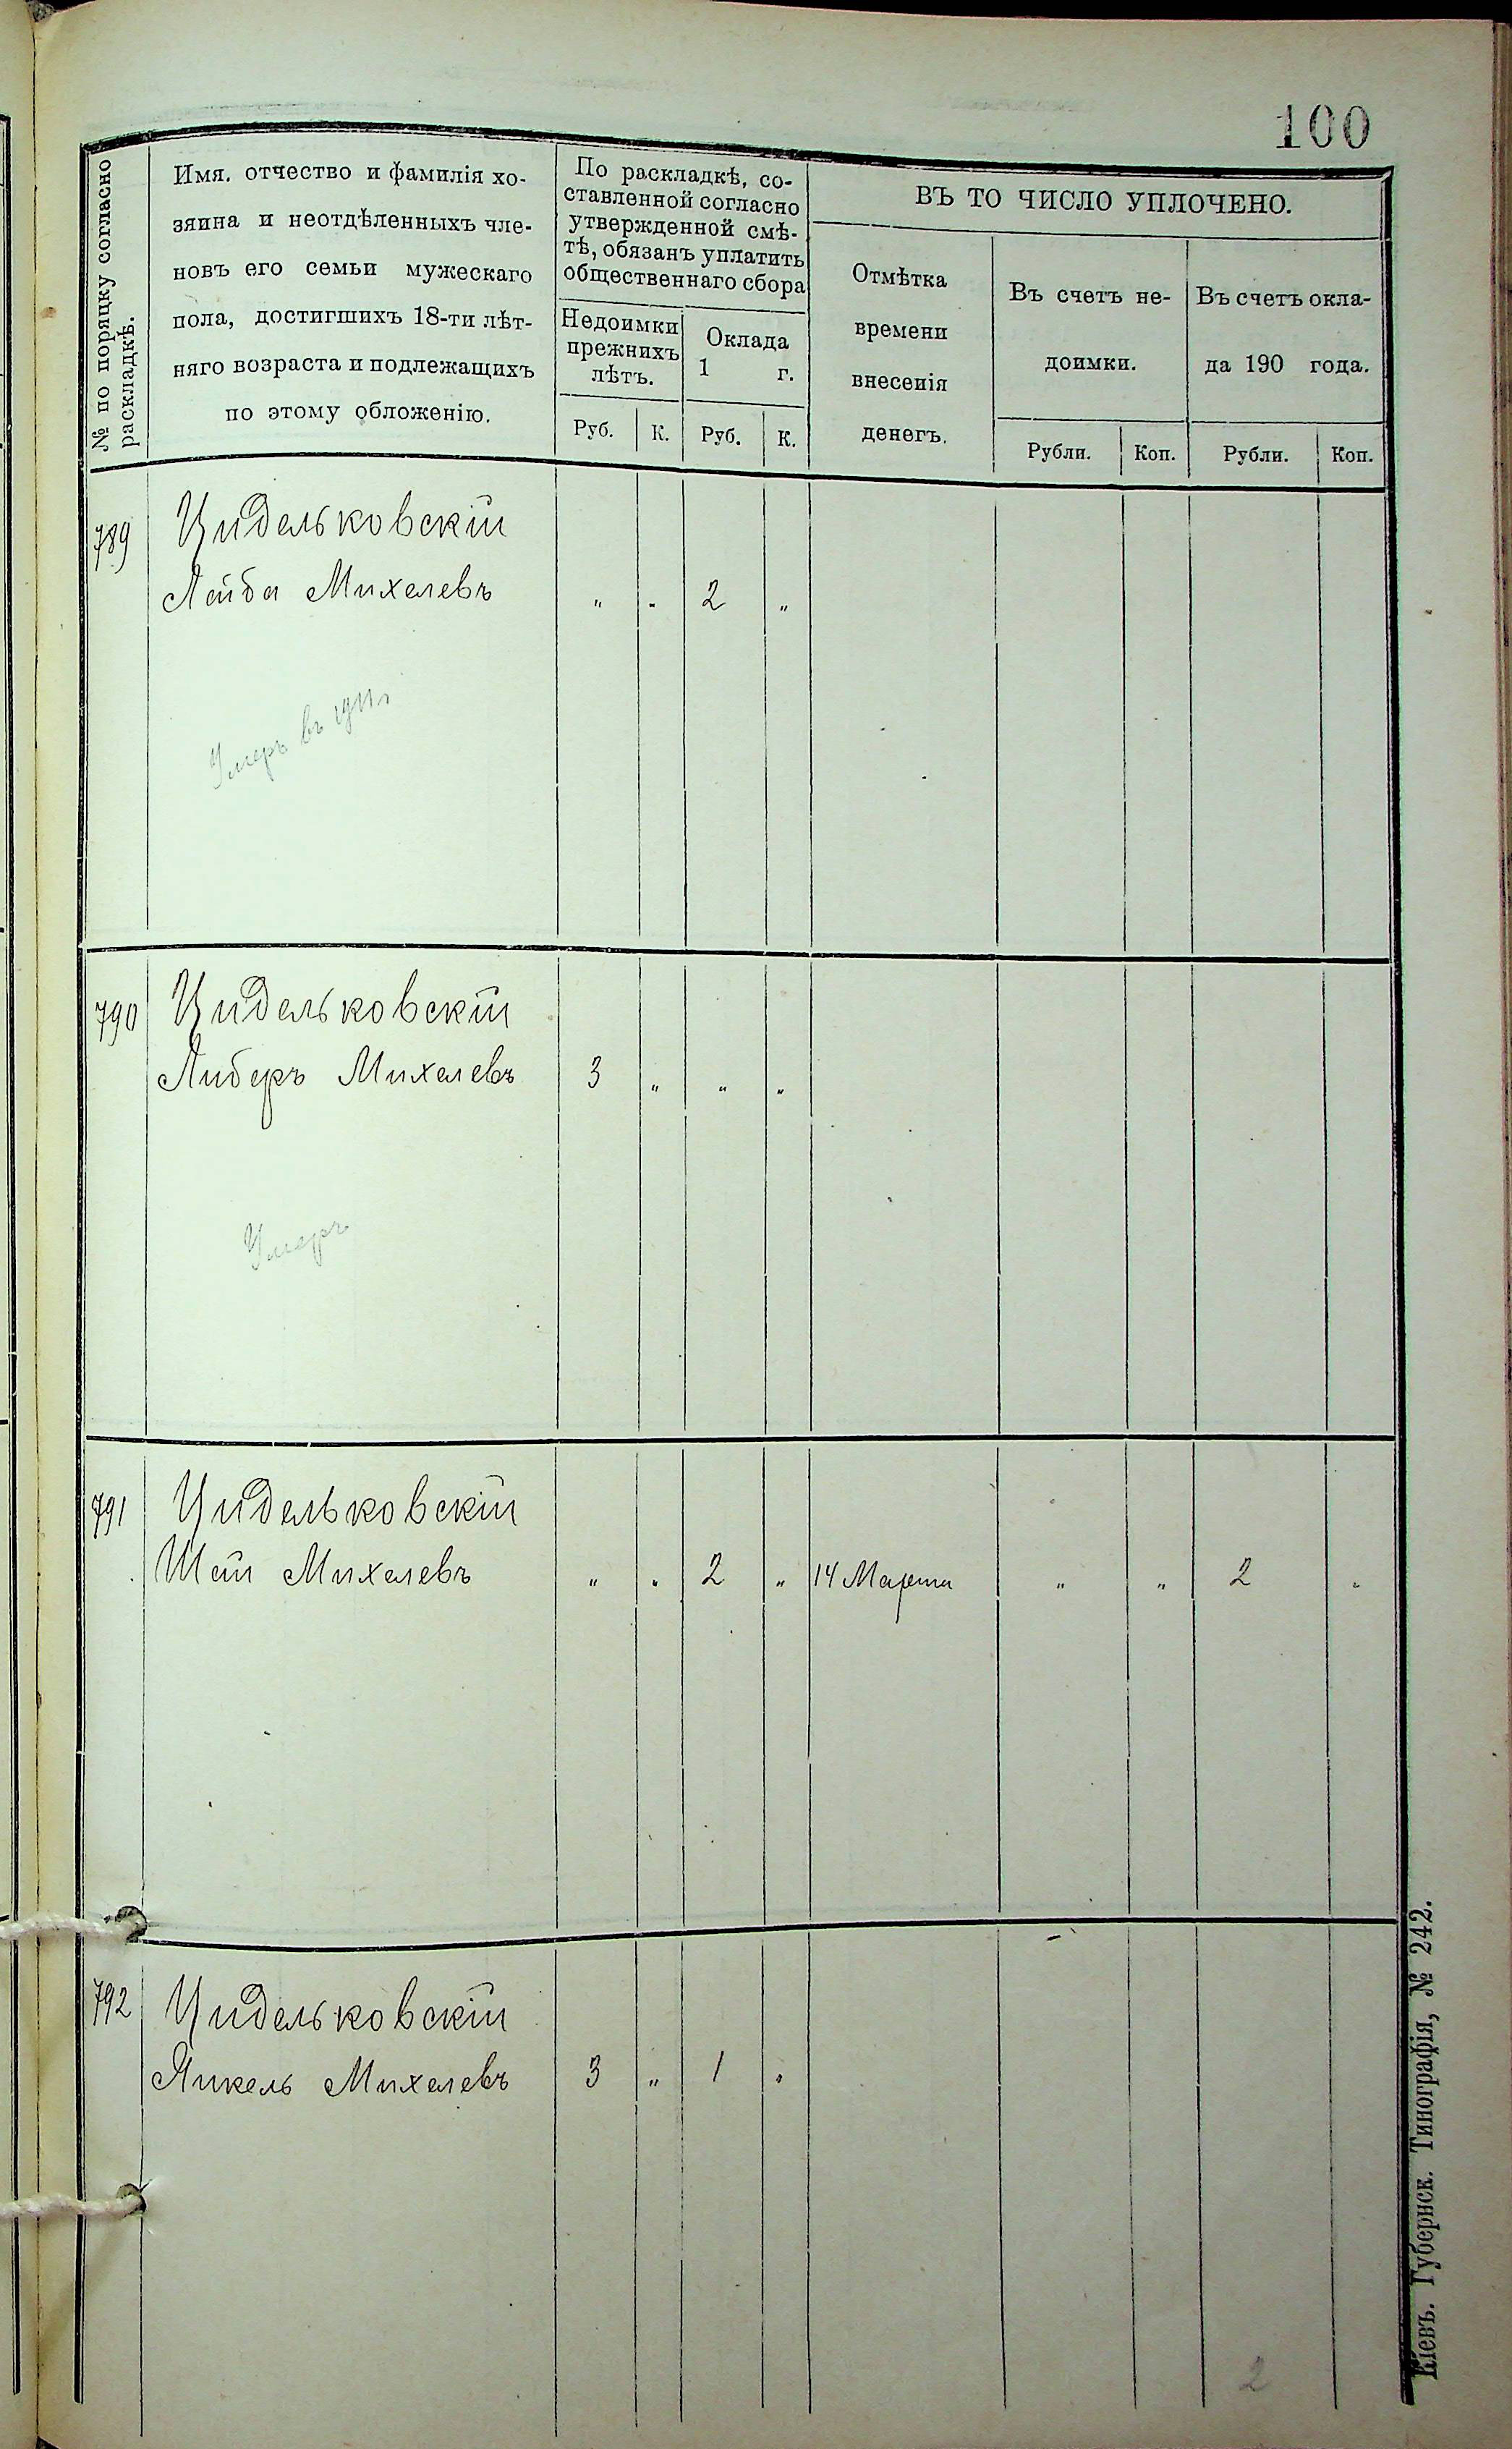 100
№ по поряцку согласно
раскладкѣ.
Имя. отчество и фамилія хо-
зяина и неотдѣленныхъ чле-
новъ его семьи мужескаго
пола, достигшихъ 18-ти лѣт-
няго возраста и подлежащихъ
по этому обложенію.
По раскладкѣ, со-
ставленной согласно
утвержденной смѣ-
тѣ, обязанъ уплатить
общественнаго сбора
Недоимки
прежнихъ
лѣтъ.
Руб. К.
Оклада
1 г.
Руб. К.
ВЪ ТО ЧИСЛО УПЛОЧЕНО.
Отмѣтка
времени
внесенія
денегъ.
Въ счетъ не-
доимки.
Рубли. Коп.
Въ счетъ окла-
да 190 года.
Рубли. Коп.
789 Цидельковскій
Лейба Михелевъ " " 2 "
Умеръ въ 1911 г
790 Цидельковскій
Либеръ Михелевъ 3 " " "
Умеръ
791 Цидельковскій
Шай Михелевъ " " 2 " 14 Марта " " 2 "
792 Цидельковскій
Янкель Михелевъ 3 " 1 "
2
Кіевъ. Губернск. Типографія, № 242.